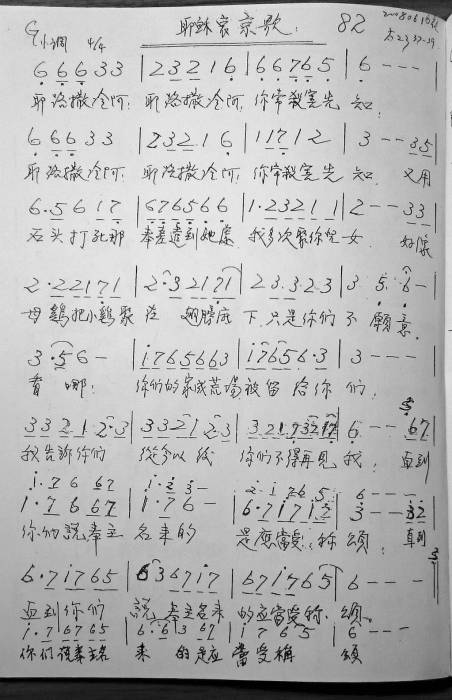 G小調 4/4 耶穌哀哭歌: 82
6 6 6 3 3 | 2 3 2 1 6 | 6 6 7 6 5 | 6 - - -
耶路撒冷阿: 耶路撒冷阿, 你常殺害先 知:
6 6 6 3 3 | 2 3 2 1 6 | 1 1 7 1 2 | 3 - - 3 5
耶路撒冷阿: 耶路撒冷阿, 你常殺害先 知. 又用
6 · 5 6 1 7 | 6 7 6 5 6 6 | 1 · 2 3 2 1 1 | 2 - - 3 3
石头打死那 奉差遣到她 我多次聚你兒 女. 好像
2 · 2 2 1 7 1 | 2 · 3 2 1 7 1 | 2 3 · 3 · 2 3 | 3 5 · 6 -
母鷄把小鷄聚 在 翅膀底 下. 只是你們 不 願意.
3 · 5 6 - | 1 7 6 5 6 6 3 | 1 7 6 5 6 · 3 | 3 - - -
看 哪: 你們的家成荒場 被留 給你 們:
3 3 2 1 2 · 3 | 3 3 2 1 2 · 3 | 6 - - 6 7
我告訴你們 從今以後 你們不得再見 我: 直到
1 · 7 6 6 7
1 · 7 6 6 7 | 1 · 7 6 - | 6 · 7 1 7 1 2 | 3 - - 3 2
你們說奉主 名來的 是應當受 称 頌: 直到
6 · 7 1 7 6 5 | 6 3 6 7 1 7 | 6 7 1 7 6 5 | 6 - - -
直到你們 說 奉主名來 的应當受称 頌.
1 · 7 6 7 6 5 | 6 · 6 3 6 7 | 1 7 6 5 | 6 - - -
你们說奉主名 來 的是应 當受稱 頌